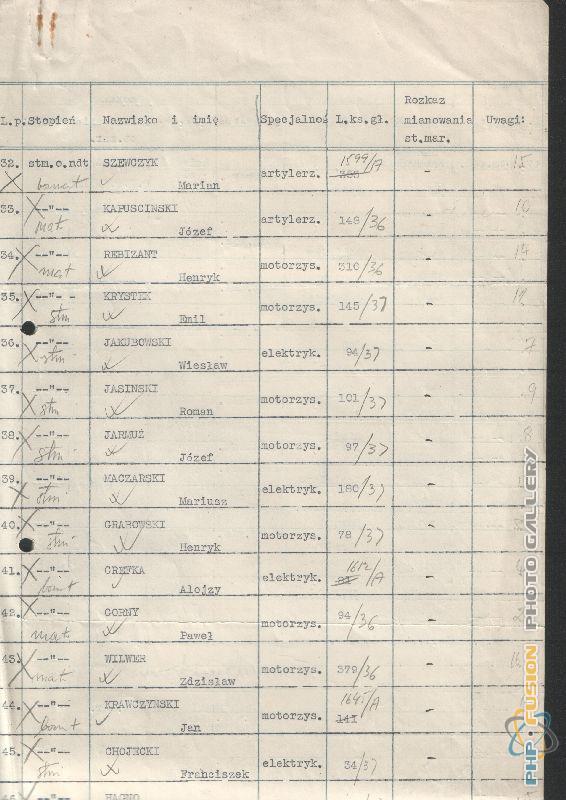 L.p. Stopień Nazwisko i imię Specjalnoś L.ks.gł. Rozkaz mianowania st.mar. Uwagi:
32. stm.c.ndt SZEWCZYK artylerz. 1599/A -
Marian
33. --"-- KAPUSCINSKI artylerz. 149/36 - 10
mat Józef
34. --"-- REBIZANT motorzys. 310/36 - 14
mat Henryk
35. --"-- KRYSTEK motorzys. 145/37 -
stm Emil
36. --"-- JAKUBOWSKI elektryk. 94/37 - 7
stm Wiesław
37. --"-- JASINSKI motorzys. 101/37 - 9
stm Roman
38. --"-- JARMUŻ motorzys. 97/37 - 8
stm Józef
39. --"-- MACZARSKI elektryk. 180/37 -
stm Mariusz
40. --"-- GRABOWSKI motorzys. 78/37 -
stm Henryk
41. --"-- CREFKA elektryk. 1612/A -
Alojzy
42. --"-- GORNY motorzys. 94/36 -
mat Paweł
43. --"-- WILWER motorzys. 379/36 -
mat Zdzisław
44. --"-- KRAWCZYNSKI motorzys. 141 -
Jan
45. --"-- CHOJECKI elektryk. 34/37 -
stm Franciszek
PHP-FUSION PHOTO GALLERY